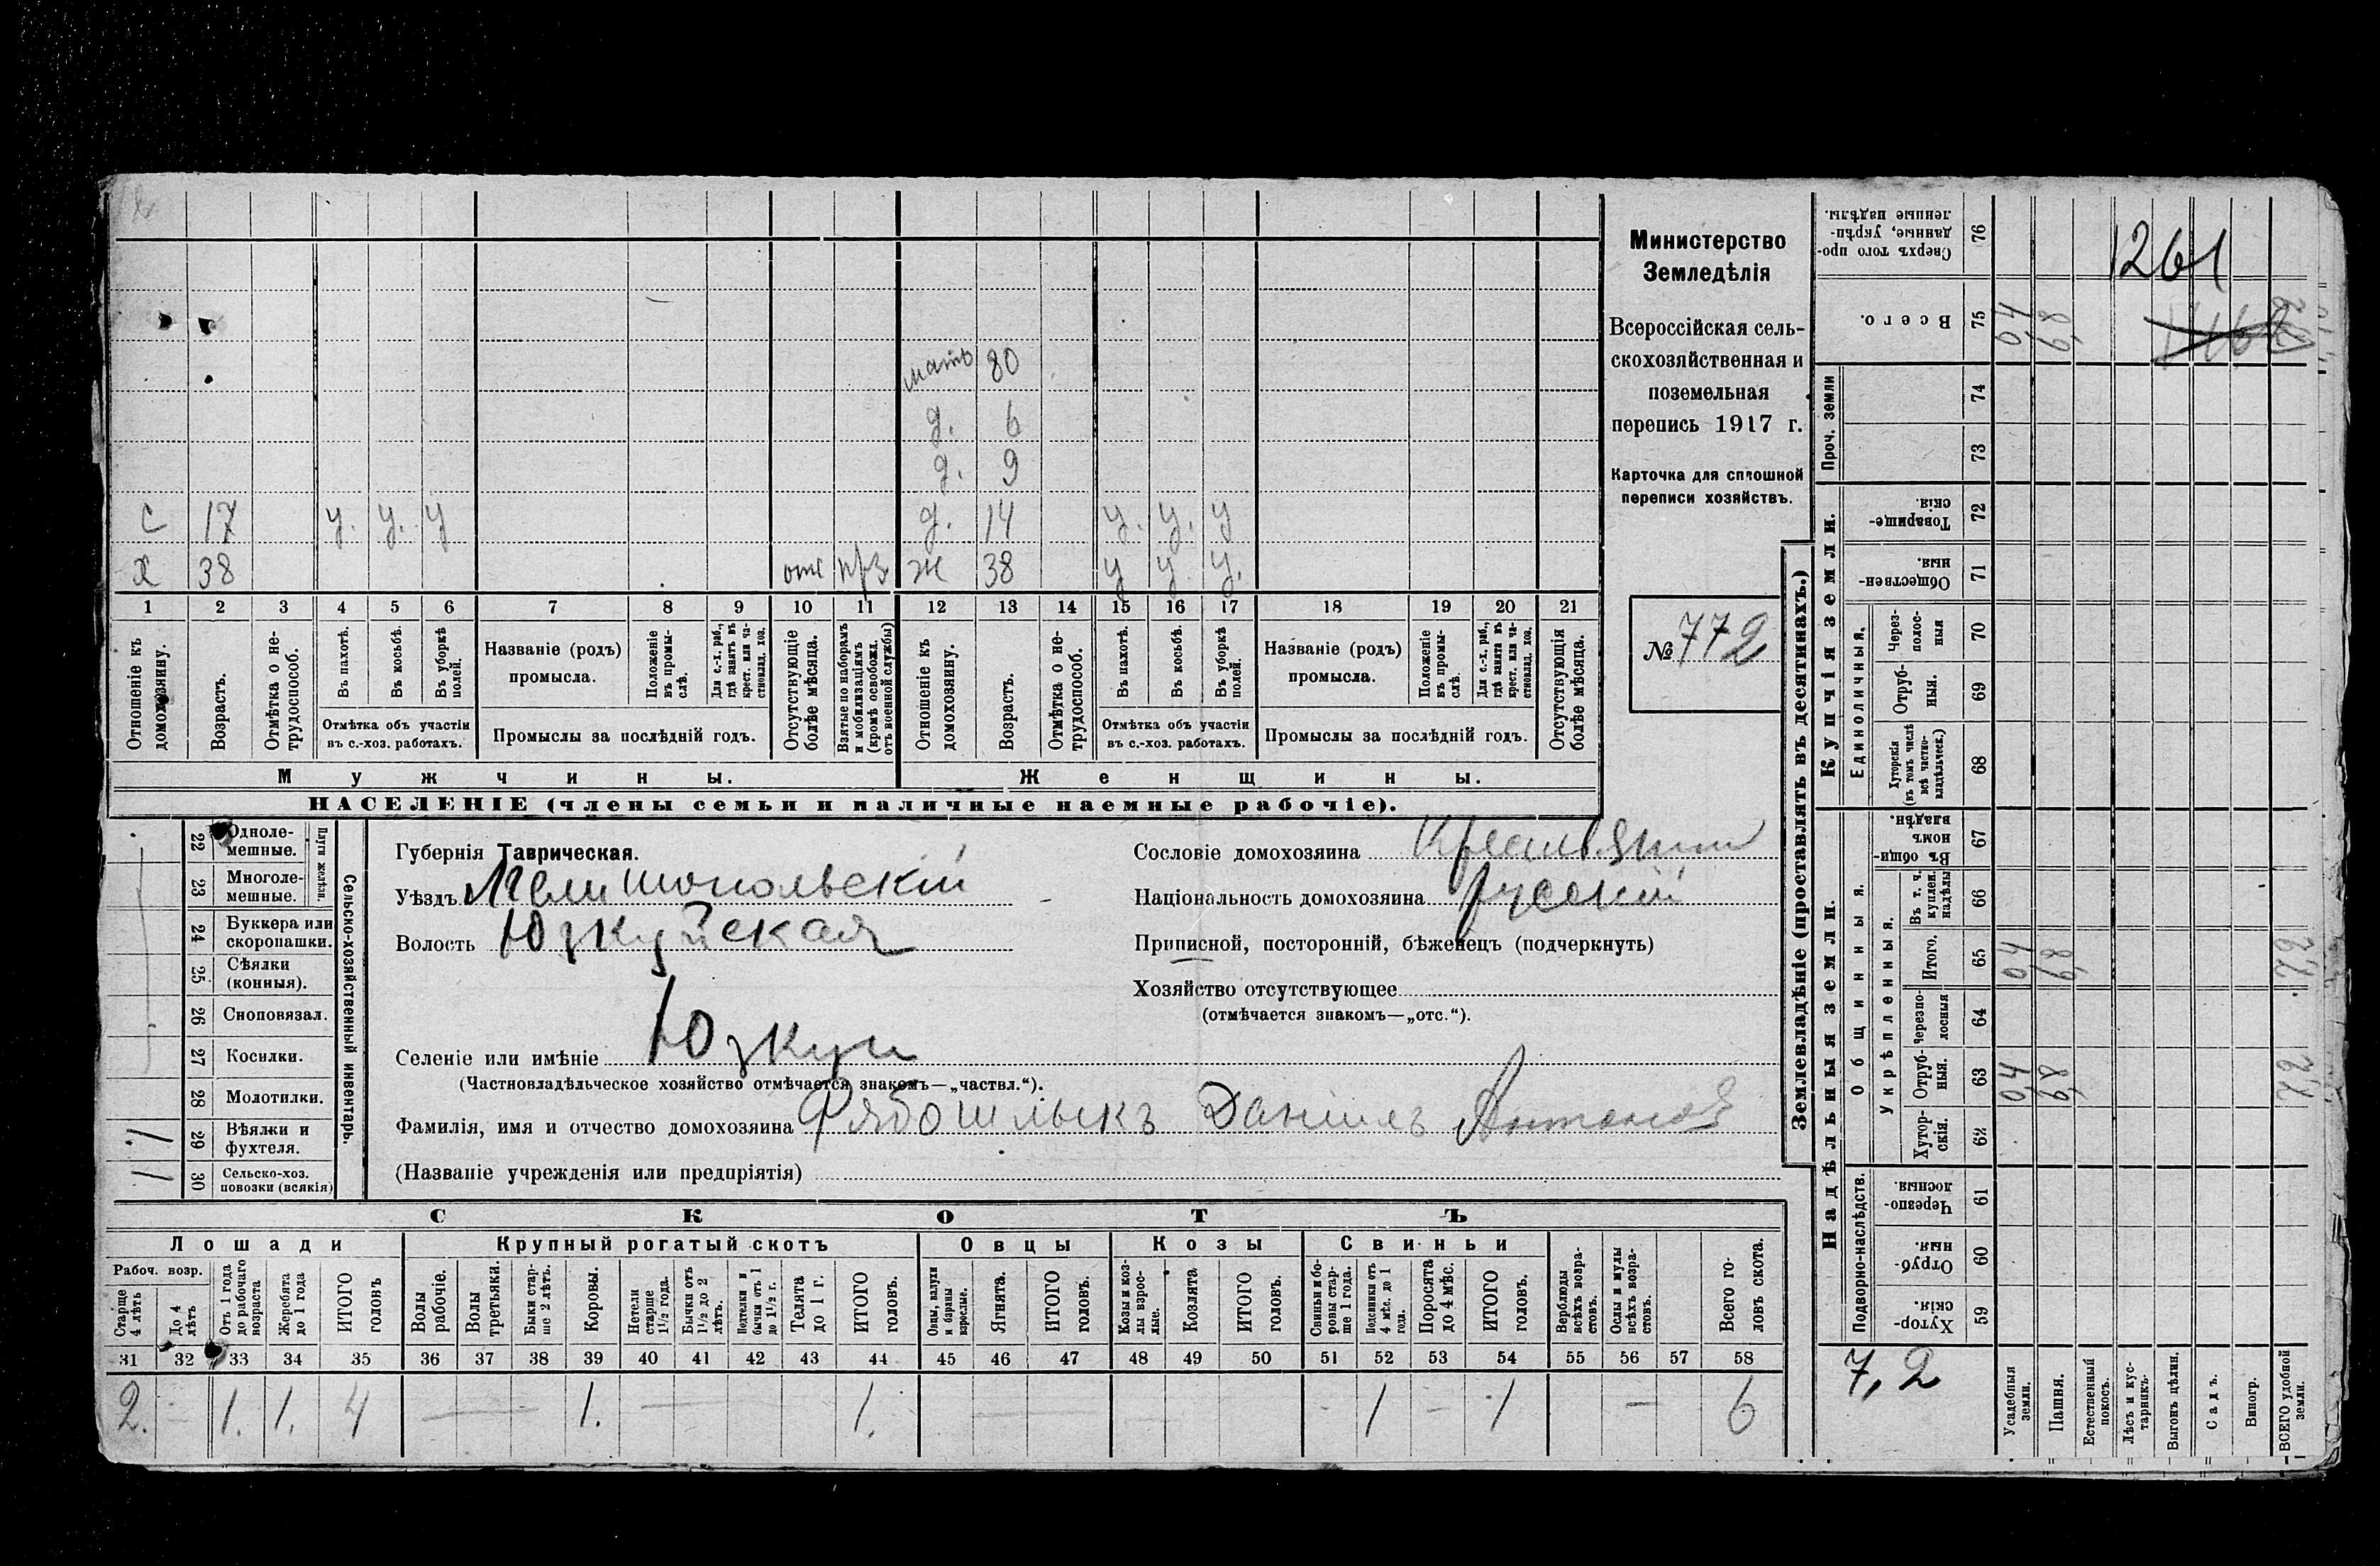 мать 80
д. 6
д. 9
с 17 у. у. у д. 14 у. у. у
х 38 отс прз. ж 38 у у. у.
1 2 3 4 5 6 7 8 9 10 11 12 13 14 15 16 17 18 19 20 21
Отношеніе къ домохозяину.
Возрастъ.
Отмѣтка о нетрудоспособ.
Въ пахотѣ.
Въ косьбѣ.
Въ уборкѣ полей.
Отмѣтка объ участіи въ с.-хоз. работахъ.
Названіе (родъ) промысла.
Положеніе въ промыслѣ.
Для с.-х. раб., гдѣ занятъ въ крест. или частновлад. хоз.
Промыслы за послѣдній годъ.
Отсутствующіе болѣе мѣсяца.
Взятые по наборамъ и мобилизаціямъ (кромѣ освобожд. отъ военной службы)
Отношеніе къ домохозяину.
Возрастъ.
Отмѣтка о нетрудоспособ.
Въ пахотѣ.
Въ косьбѣ.
Въ уборкѣ полей.
Отмѣтка объ участіи въ с.-хоз. работахъ.
Названіе (родъ) промысла.
Положеніе въ промыслѣ.
Для с.-х. раб., гдѣ занята въ крест. или частновлад. хоз.
Промыслы за послѣдній годъ.
Отсутствующія болѣе мѣсяца.
Мужчины. Женщины.
НАСЕЛЕНІЕ (члены семьи и наличные наемные рабочіе).
Министерство
Земледѣлія
Всероссійская сель-
скохозяйственная и
поземельная
перепись 1917 г.
Карточка для сплошной
переписи хозяйствъ.
№ 772
22 Одноле-мешные.
23 Многоле-мешные.
Плуги желѣзн.
24 Буккера или скоропашки.
25 Сѣялки (конныя).
26 Сноповязал.
27 Косилки.
28 Молотилки.
29 Вѣялки и фухтеля. 1
30 Сельско-хоз. повозки (всякія) 1
Сельско-хозяйственный инвентарь.
Губернія Таврическая.
Уѣздъ Мелитопольскій
Волость Юзкуйская
Селеніе или имѣніе Юзкуи
(Частновладѣльческое хозяйство отмѣчается знакомъ—„частвл.“).
Фамилія, имя и отчество домохозяина Рябошлыкъ Даніилъ Антонов
(Названіе учрежденія или предпріятія)
Сословіе домохозяина Крестьянин
Національность домохозяина русскій
Приписной, посторонній, бѣженецъ (подчеркнуть)
Хозяйство отсутствующее
(отмѣчается знакомъ—„отс.“).
СКОТЪ
Лошади Крупный рогатый скотъ Овцы Козы Свиньи
Рабоч. возр.
Старше 4 лѣтъ
До 4 лѣтъ
Отъ 1 года до рабочаго возраста
Жеребята до 1 года
ИТОГО головъ
Волы рабочіе.
Волы третьяки.
Быки старше 2 лѣтъ.
Коровы.
Нетели старше 1½ года.
Бычки отъ 1½ до 2 лѣтъ.
Нетелки и бычки отъ 1 до 1½ г.
Телята до 1 г.
ИТОГО головъ.
Овцы, валухи и бараны взрослые.
Ягнята.
ИТОГО головъ.
Козы и козлы взрослые.
Козлята
ИТОГО головъ.
Свиньи и боровы старше 1 года.
Подсвинки отъ 4 мѣс. до 1 года.
Поросята до 4 мѣс.
ИТОГО головъ.
Верблюды всѣхъ возрастовъ.
Ослы и мулы всѣхъ возрастовъ.
Всего головъ скота.
31 32 33 34 35 36 37 38 39 40 41 42 43 44 45 46 47 48 49 50 51 52 53 54 55 56 57 58
2. - 1. 1. 4 — 1. — 1. — - 1 - 1 — 6
Землевладѣніе (проставлять въ десятинахъ.)
Надѣльныя земли. Купчія земли. Проч. земли
Подворно-наслѣдств.
Общинныя.
Укрѣпленныя.
Единоличныя.
Сверхъ того проданные, укрѣпленные надѣлы. 76
Всего. 75 04 6,8
74
73
Товарищескія. 72
Общественныя. 71
Черезполосныя 70
Отрубныя. 69
Хуторскія (въ томъ числѣ всѣ частновладѣльческ.) 68
Въ общинномъ владѣн. 67
Въ т. ч. куплен. надѣлы 66
Итого. 65 04 6,8 7,2
Черезполосныя 64
Отрубныя. 63 04 6,8 7,2
Хуторскія. 62
Черезполосныя. 61
Отрубныя. 60
Хуторскія. 59
1261
7,2
Усадебныя земли.
Пашня.
Естественный покосъ.
Лѣсъ и кустарникъ.
Выгонъ цѣлин.
Садъ.
Виногр.
ВСЕГО удобной земли.